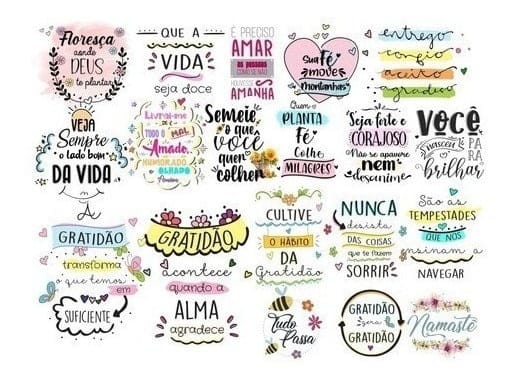 Floresça
aonde
DEUS
te plantar
QUE A
VIDA
seja doce
É PRECISO
AMAR
as pessoas
COMO SE NÃO
HOUVESSE
AMANHÃ
Sua
Fé
move
montanhas
entrego
confio
aceito
gradeço
VEJA
Sempre
o lado bom
DA VIDA
Livrai-me
DE
TODO O MAL
Amado,
HUMORADO
OLHADO
Semeie
o que
você
quer
colher
Quem
PLANTA
Fé
Colhe
MILAGRES
Seja forte e
CORAJOSO
Não se apavore
nem
desanime
VOCÊ
nasceu PARA
brilhar
A
GRATIDÃO
transforma
o que temos
em
SUFICIENTE
GRATIDÃO
acontece
quando a
ALMA
agradece
CULTIVE
O HÁBITO
DA
Gratidão
Tudo
Passa
NUNCA
desista
DAS COISAS
que te fazem
SORRIR
São as
TEMPESTADES
QUE NOS
ensinam a
NAVEGAR
GRATIDÃO
gera
GRATIDÃO
Namastê